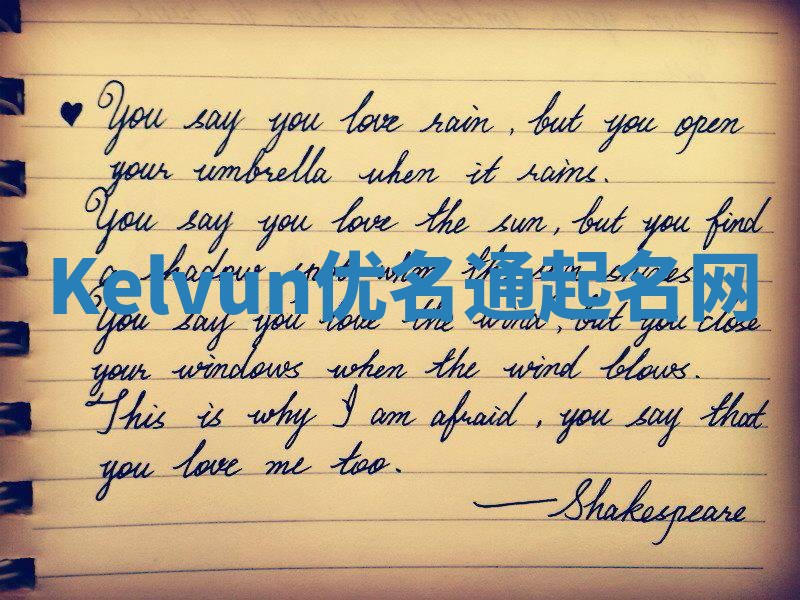 ♥ You say you love rain, but you open
your umbrella when it rains.
You say you love the sun, but you find
a shadow spot when the sun shines
Kelvun优名通起名网
You say you love the wind, but you close
your windows when the wind blows.
This is why I am afraid, you say that
you love me too.
—Shakespeare